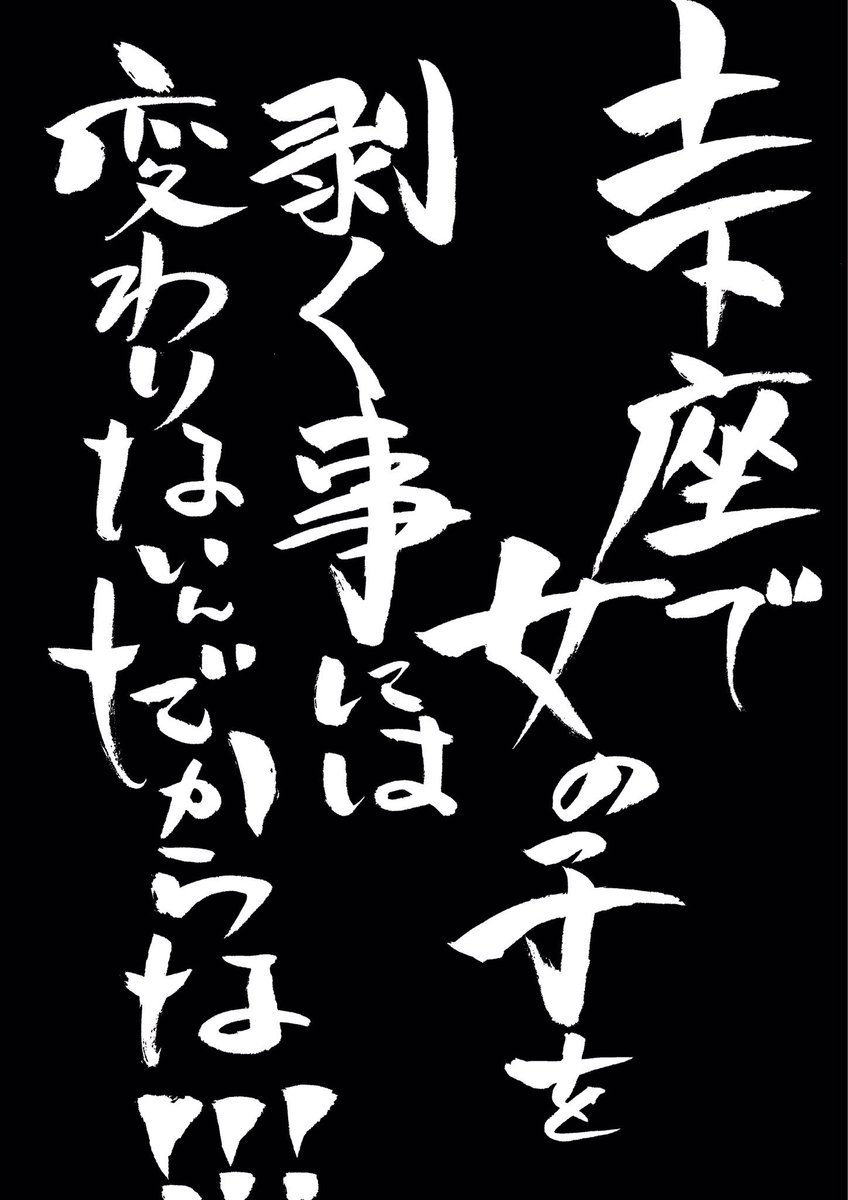 土下座で
女の子を
剥く事には
変わりないんだからな!!!